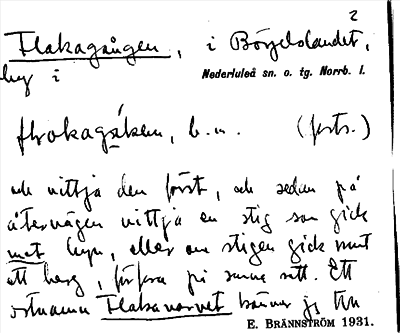 2
Flakagången, i Börjelslandet,
by i
Nederluleå sn. o. tg. Norrb. l.
b.m. (forts.)
och vittja den först, och sedan på
återvägen vittja en stig som gick
mot byn, eller om stigen gick runt
ett berg, på samma sätt. Ett
ortnamn Flakavarvet känner jag
E. BRÄNNSTRÖM 1931.